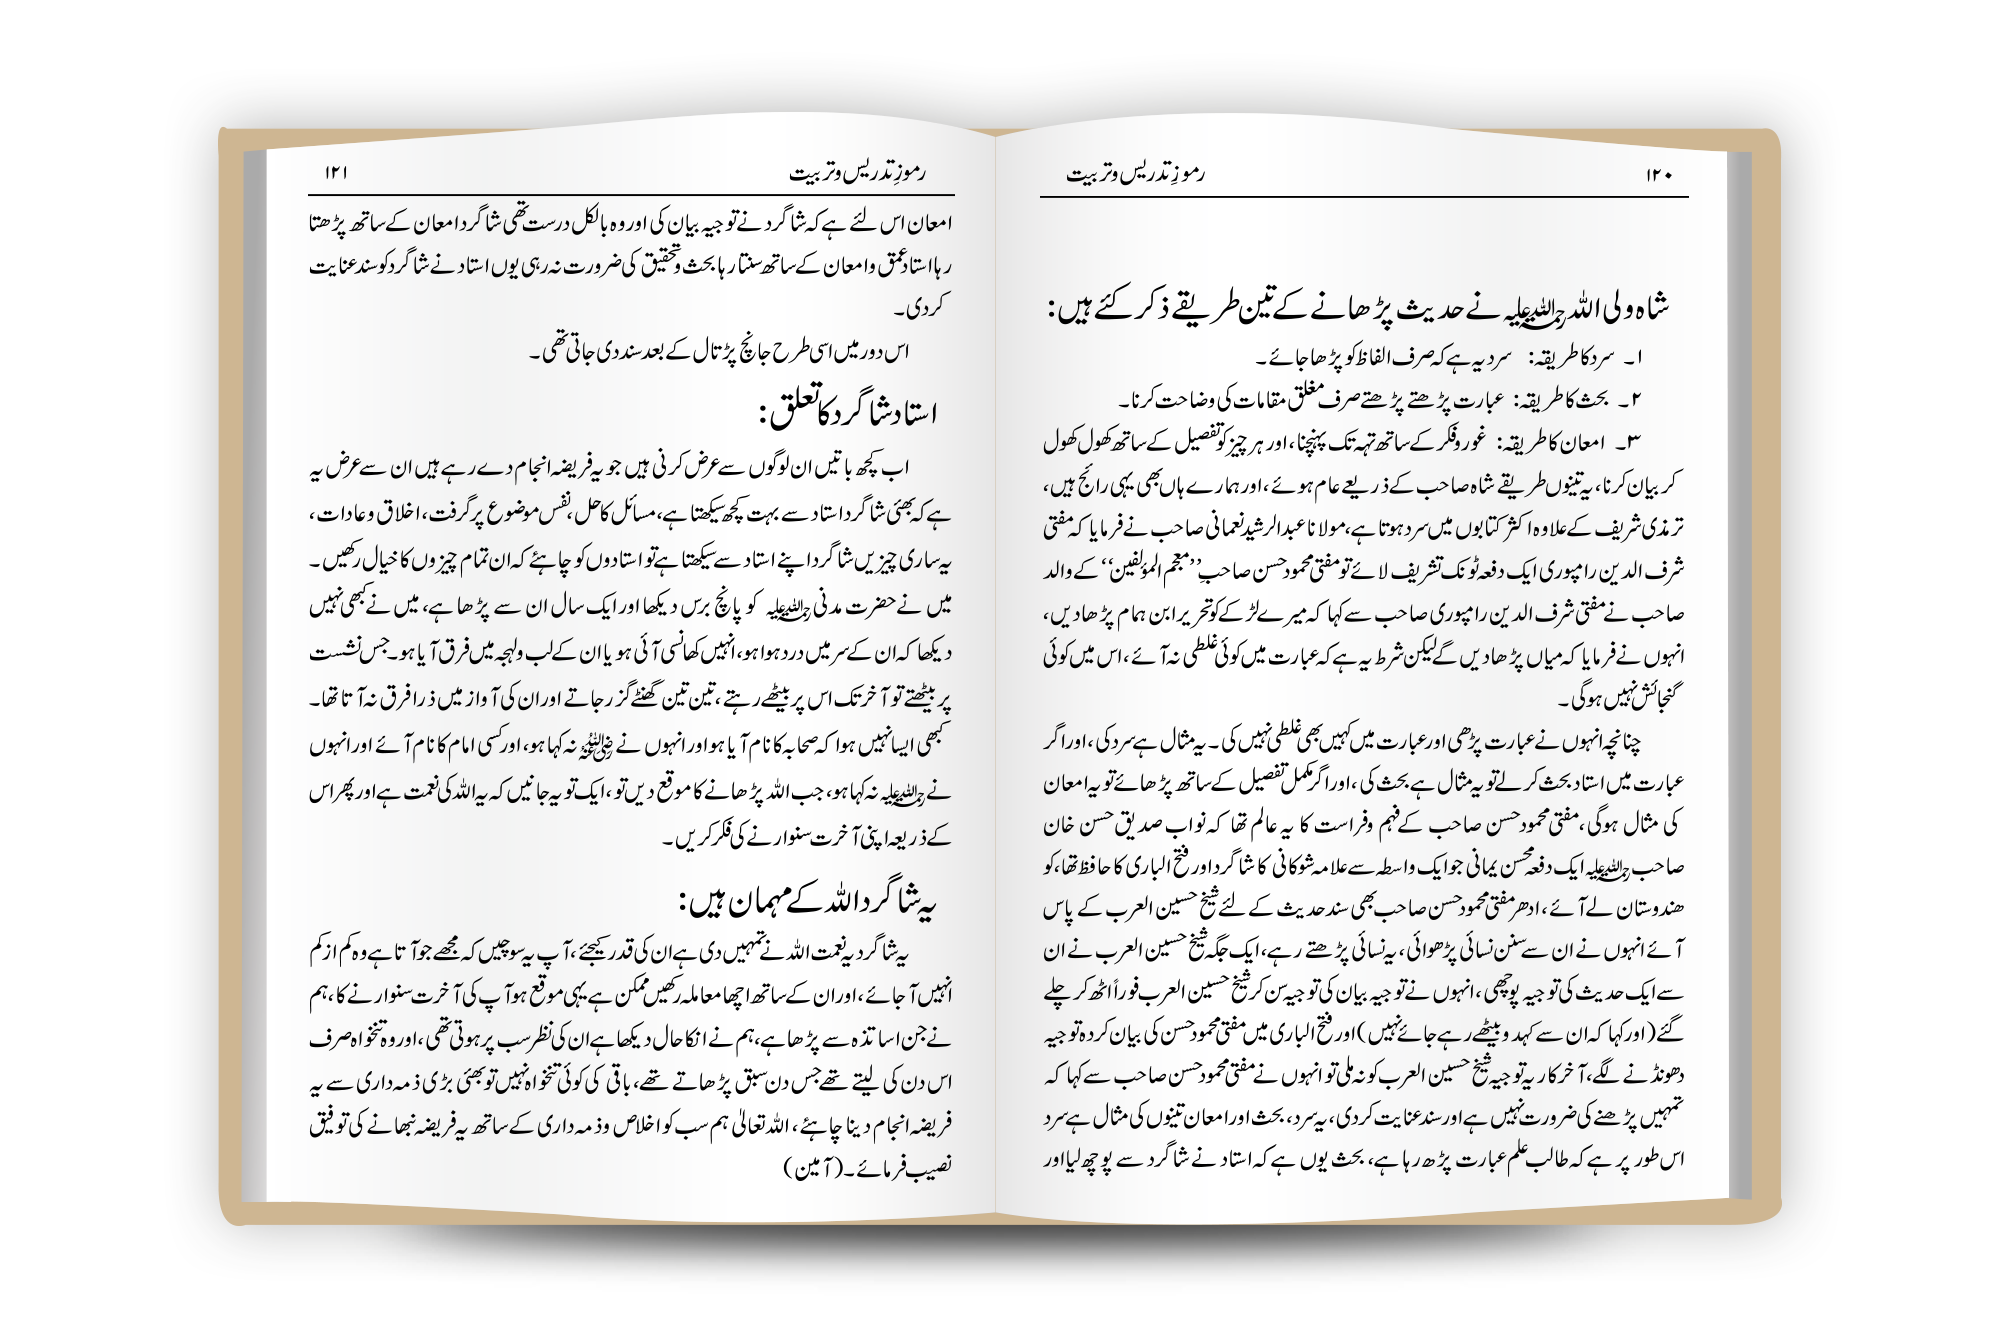 ۱۲۰ رموزِ تدریس و تربیت
شاہ ولی اللہ رحمۃ اللہ علیہ نے حدیث پڑھانے کے تین طریقے ذکر کئے ہیں:
۱۔ سرد کا طریقہ: سرد یہ ہے کہ صرف الفاظ کو پڑھا جائے۔
۲۔ بحث کا طریقہ: عبارت پڑھتے پڑھتے صرف مغلق مقامات کی وضاحت کرنا۔
۳۔ امعان کا طریقہ: غور و فکر کے ساتھ تہہ تک پہنچنا، اور ہر چیز کو تفصیل کے ساتھ کھول کھول
کر بیان کرنا، یہ تینوں طریقے شاہ صاحب کے ذریعے عام ہوئے، اور ہمارے ہاں بھی یہی رائج ہیں،
ترمذی شریف کے علاوہ اکثر کتابوں میں سرد ہوتا ہے، مولانا عبدالرشید نعمانی صاحب نے فرمایا کہ مفتی
شرف الدین رامپوری ایک دفعہ ٹونک تشریف لائے تو مفتی محمود حسن صاحبِ ’’معجم المؤلفین‘‘ کے والد
صاحب نے مفتی شرف الدین رامپوری صاحب سے کہا کہ میرے لڑکے کو تحریر ابن ہمام پڑھادیں،
انہوں نے فرمایا کہ میاں پڑھادیں گے لیکن شرط یہ ہے کہ عبارت میں کوئی غلطی نہ آئے، اس میں کوئی
گنجائش نہیں ہوگی۔
چنانچہ انہوں نے عبارت پڑھی اور عبارت میں کہیں بھی غلطی نہیں کی۔ یہ مثال ہے سرد کی، اور اگر
عبارت میں استاد بحث کرلے تو یہ مثال ہے بحث کی، اور اگر مکمل تفصیل کے ساتھ پڑھائے تو یہ امعان
کی مثال ہوگی، مفتی محمود حسن صاحب کے فہم وفراست کا یہ عالم تھا کہ نواب صدیق حسن خان
صاحب رحمۃ اللہ علیہ ایک دفعہ محسن یمانی جو ایک واسطہ سے علامہ شوکانی کا شاگرد اور فتح الباری کا حافظ تھا، کو
ھندوستان لے آئے، ادھر مفتی محمود حسن صاحب بھی سند حدیث کے لئے شیخ حسین العرب کے پاس
آئے انہوں نے ان سے سنن نسائی پڑھوائی، یہ نسائی پڑھتے رہے، ایک جگہ شیخ حسین العرب نے ان
سے ایک حدیث کی توجیہ پوچھی، انہوں نے توجیہ بیان کی توجیہ سن کر شیخ حسین العرب فوراً اٹھ کر چلے
گئے (اور کہا کہ ان سے کہدو بیٹھے رہے جائے نہیں) اور فتح الباری میں مفتی محمود حسن کی بیان کردہ توجیہ
دھونڈنے لگے، آخرکار یہ توجیہ شیخ حسین العرب کو نہ ملی تو انہوں نے مفتی محمود حسن صاحب سے کہا کہ
تمہیں پڑھنے کی ضرورت نہیں ہے اور سند عنایت کردی، یہ سرد، بحث اور امعان تینوں کی مثال ہے سرد
اس طور پر ہے کہ طالب علم عبارت پڑھ رہا ہے، بحث یوں ہے کہ استاد نے شاگرد سے پوچھ لیا اور
رموزِ تدریس و تربیت ۱۲۱
امعان اس لئے ہے کہ شاگرد نے توجیہ بیان کی اور وہ بالکل درست تھی شاگرد امعان کے ساتھ پڑھتا
رہا استاد عمق وامعان کے ساتھ سنتا رہا بحث وتحقیق کی ضرورت نہ رہی یوں استاد نے شاگرد کو سند عنایت
کردی۔
اس دور میں اسی طرح جانچ پڑتال کے بعد سند دی جاتی تھی۔
استاد شاگرد کا تعلق:
اب کچھ باتیں ان لوگوں سے عرض کرنی ہیں جو یہ فریضہ انجام دے رہے ہیں ان سے عرض یہ
ہے کہ بھئی شاگرد استاد سے بہت کچھ سیکھتا ہے، مسائل کا حل، نفس موضوع پر گرفت، اخلاق وعادات،
یہ ساری چیزیں شاگرد اپنے استاد سے سیکھتا ہے تو استادوں کو چاہئے کہ ان تمام چیزوں کا خیال رکھیں۔
میں نے حضرت مدنی رحمۃ اللہ علیہ کو پانچ برس دیکھا اور ایک سال ان سے پڑھا ہے، میں نے کبھی نہیں
دیکھا کہ ان کے سر میں درد ہوا ہو، انہیں کھانسی آئی ہو یا ان کے لب ولہجہ میں فرق آیا ہو۔ جس نشست
پر بیٹھتے تو آخر تک اس پر بیٹھے رہتے، تین تین گھنٹے گزرجاتے اور ان کی آواز میں ذرا فرق نہ آتا تھا۔
کبھی ایسا نہیں ہوا کہ صحابہ کا نام آیا ہو اور انہوں نے رضی اللہ عنہ نہ کہا ہو، اور کسی امام کا نام آئے اور انہوں
نے رحمۃ اللہ علیہ نہ کہا ہو، جب اللہ پڑھانے کا موقع دیں تو، ایک تو یہ جانیں کہ یہ اللہ کی نعمت ہے اور پھر اس
کے ذریعہ اپنی آخرت سنوارنے کی فکر کریں۔
یہ شاگرد اللہ کے مہمان ہیں:
یہ شاگرد یہ نعمت اللہ نے تمہیں دی ہے ان کی قدر کیجئے، آپ یہ سوچیں کہ مجھے جو آتا ہے وہ کم از کم
انہیں آجائے، اور ان کے ساتھ اچھا معاملہ رکھیں ممکن ہے یہی موقع ہو آپ کی آخرت سنوارنے کا، ہم
نے جن اساتذہ سے پڑھا ہے، ہم نے انکا حال دیکھا ہے ان کی نظر سب پر ہوتی تھی، اور وہ تنخواہ صرف
اس دن کی لیتے تھے جس دن سبق پڑھاتے تھے، باقی کی کوئی تنخواہ نہیں تو بھئی بڑی ذمہ داری سے یہ
فریضہ انجام دینا چاہئے، اللہ تعالیٰ ہم سب کو اخلاص وذمہ داری کے ساتھ یہ فریضہ نبھانے کی توفیق
نصیب فرمائے۔ (آمین)